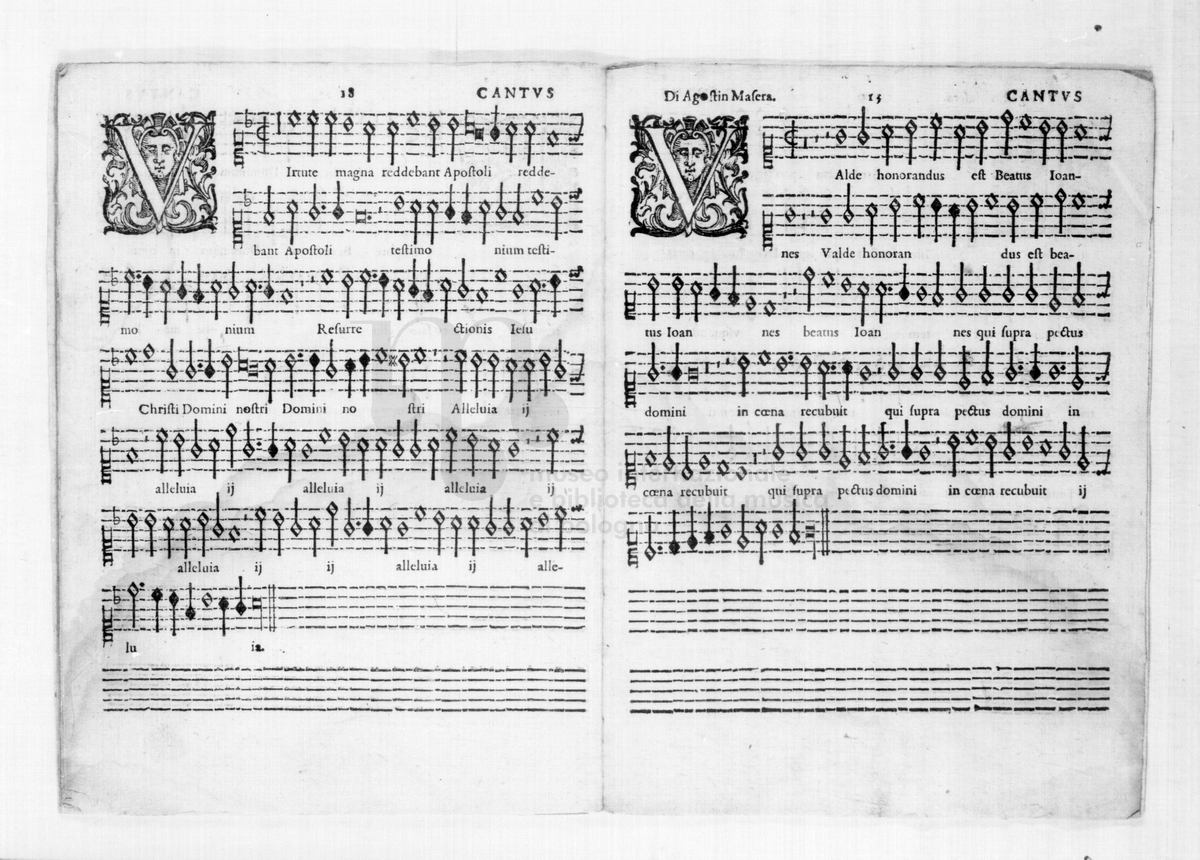 18 CANTVS
V Irtute magna reddebant Apostoli redde-
bant Apostoli testimo nium testi-
mo nium Resurre ctionis Iesu
Christi Domini nostri Domini no stri Alleluia ij
alleluia ij alleluia ij alleluia ij
alleluia ij ij alleluia ij alle-
lu ia.
Di Agostin Masera. 15 CANTVS
V Alde honorandus est Beatus Ioan-
nes Valde honoran dus est bea-
tus Ioan nes beatus Ioan nes qui supra pectus
domini in cœna recubuit qui supra pectus domini in
cœna recubuit qui supra pectus domini in cœna recubuit ij
museo internazionale
e biblioteca della musica
di bologna